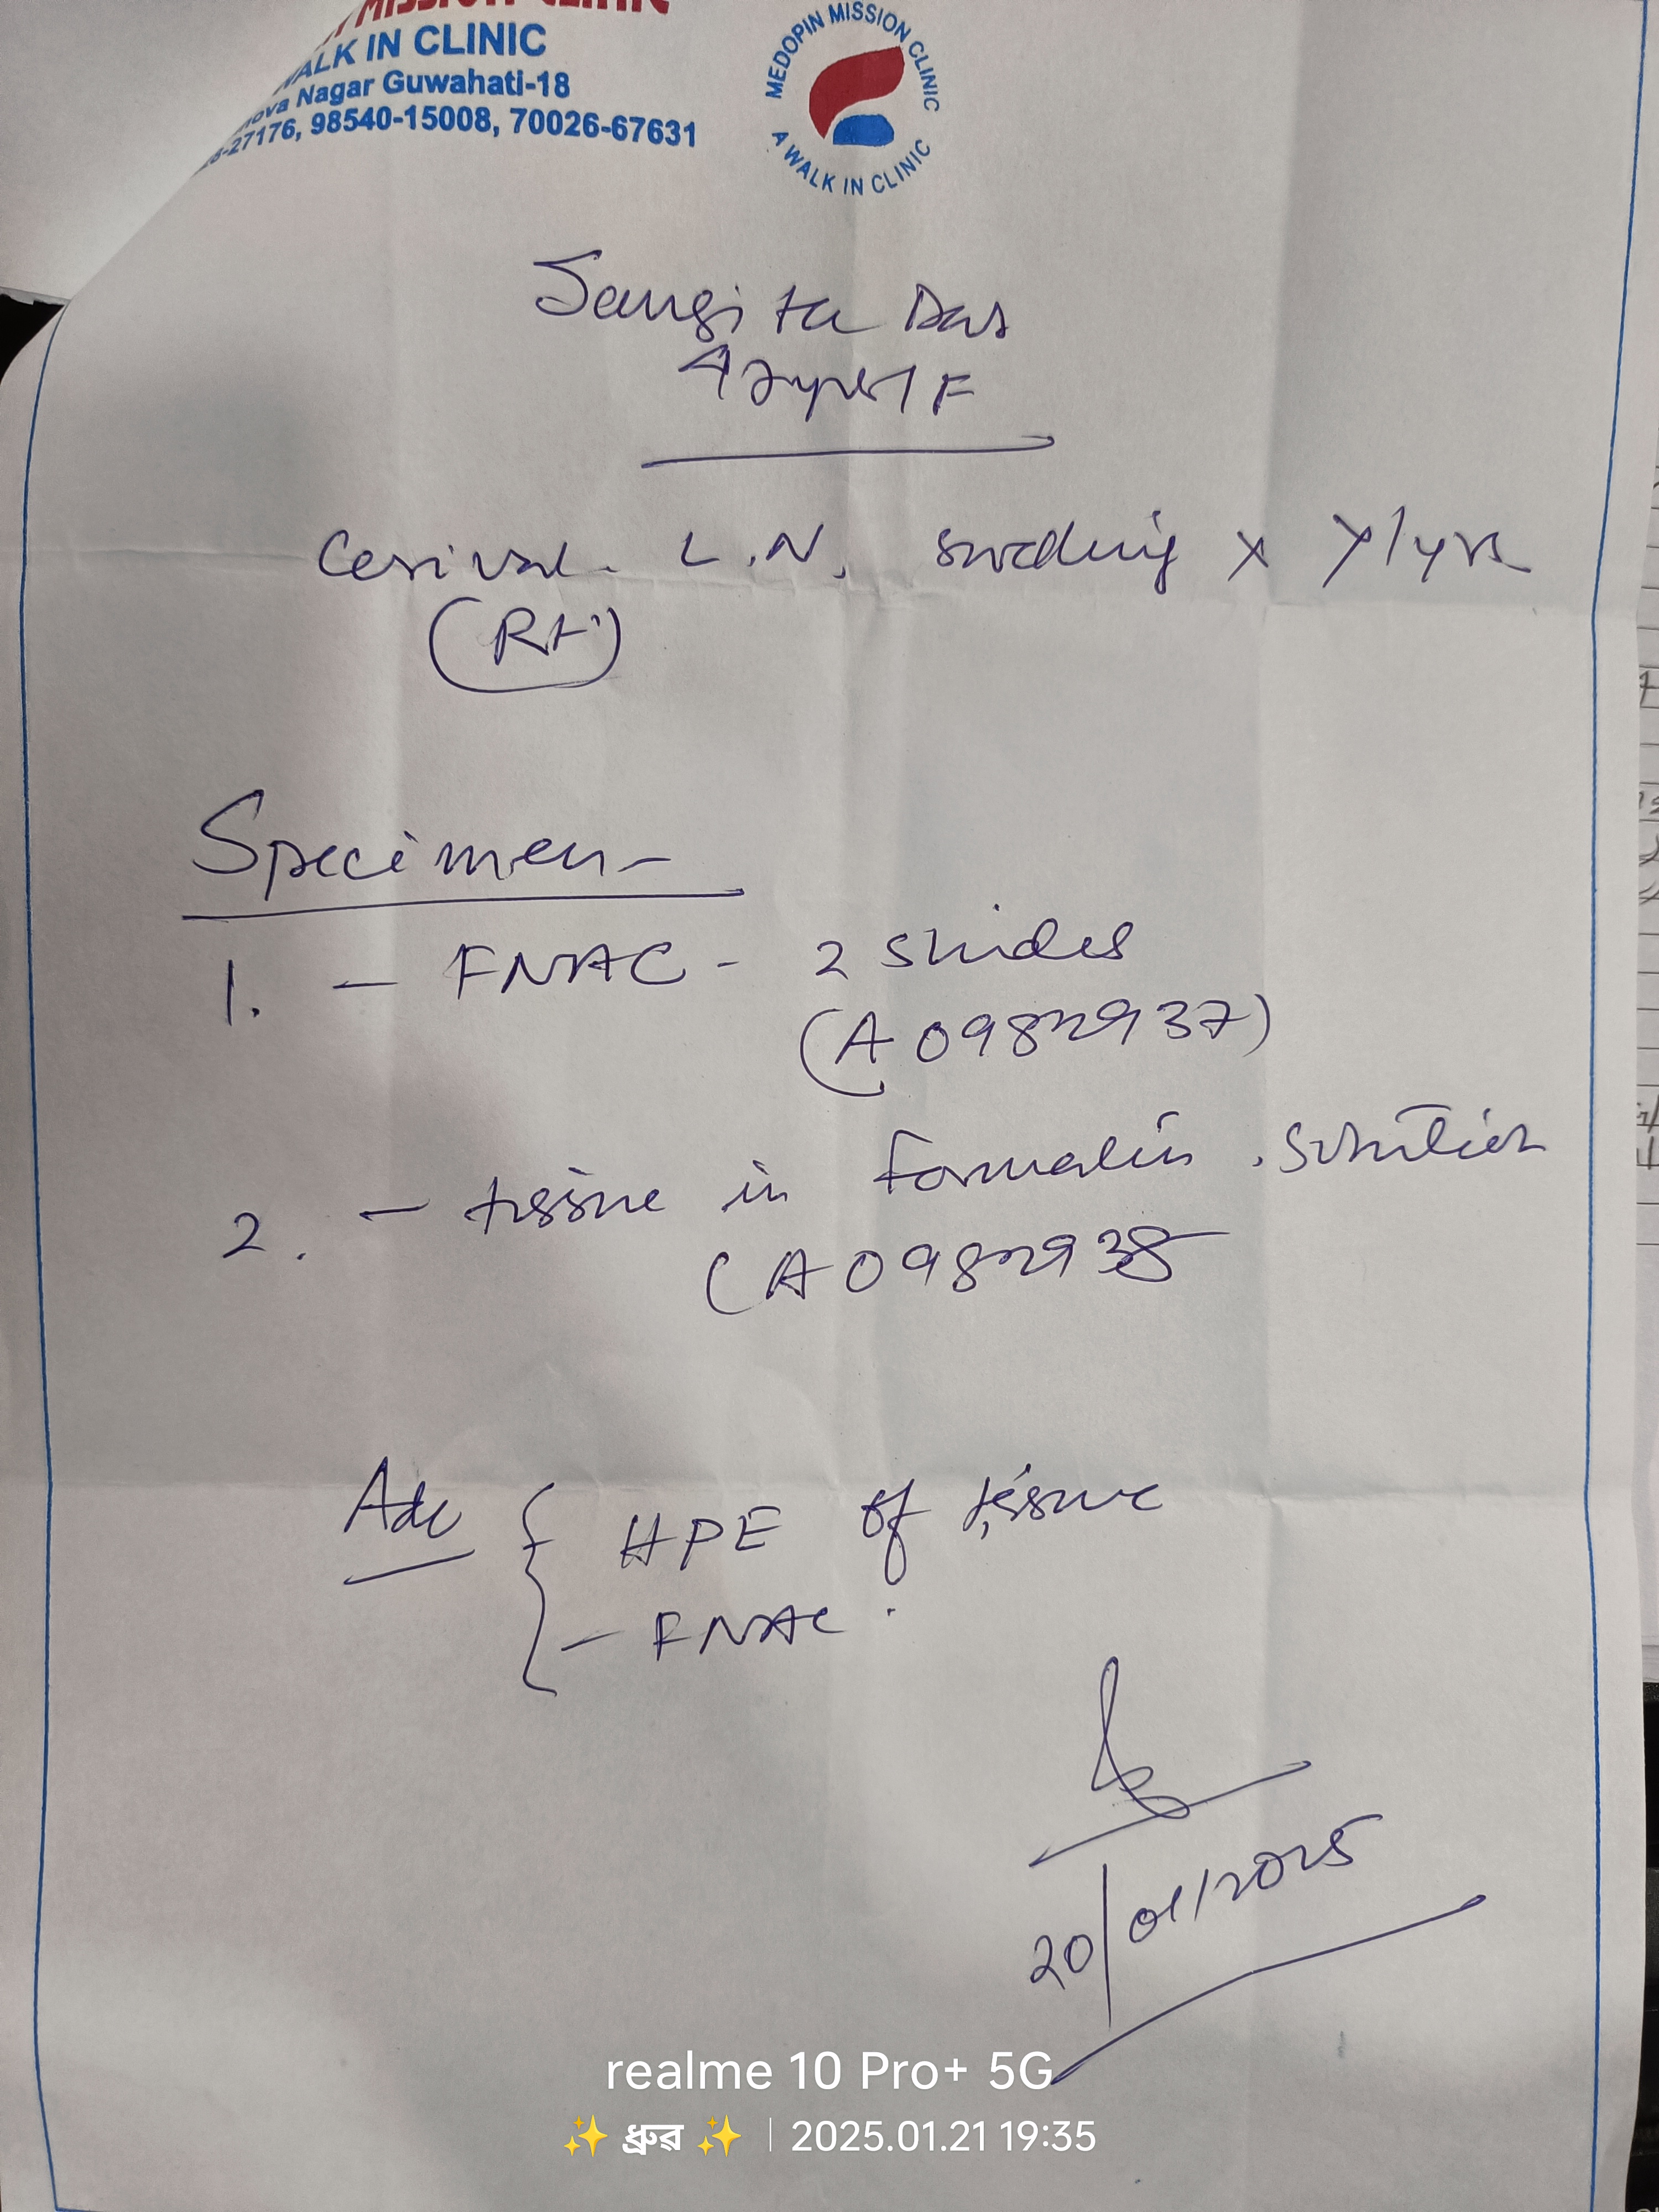 MISSION CLINIC
WALK IN CLINIC
Nagar Guwahati-18
27176, 98540-15008, 70026-67631
MEDOPIN MISSION CLINIC
A WALK IN CLINIC
Sangita Das
42yrs/F
Cerival. L.N. swelling x >1yrs
(Rt)
Specimen-
1. - FNAC - 2 slides
(A0982937)
2. - tissue in Formalin solution
(A0982938
Adv { HPE of tissue
- FNAC.
20/01/2025
realme 10 Pro+ 5G
✨ ধ্ৰুৱ ✨ | 2025.01.21 19:35